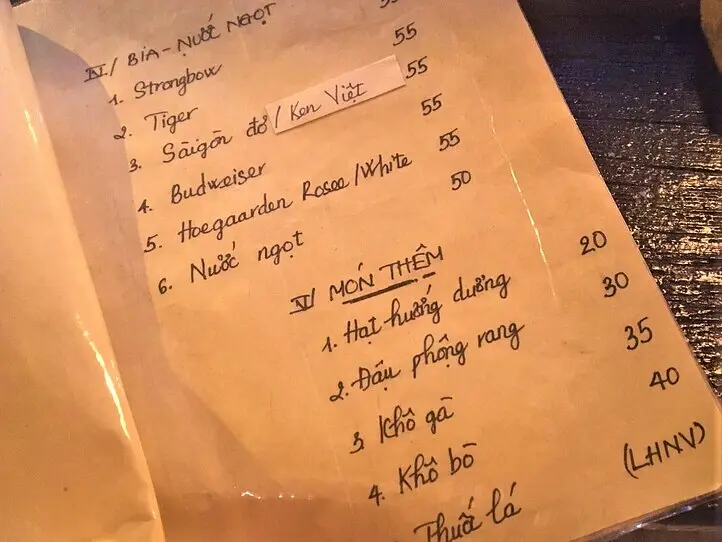 IV/ BIA - NƯỚC NGỌT
1. Strongbow 55
2. Tiger 55
3. Sàigòn đỏ / Ken Việt 55
4. Budweiser 55
5. Hoegaarden Rosee/White 55
6. Nước ngọt 50
V/ MÓN THÊM
1. Hạt hướng dương 20
2. Đậu phộng rang 30
3. Khô gà 35
4. Khô bò 40
Thuốc lá (LHNV)